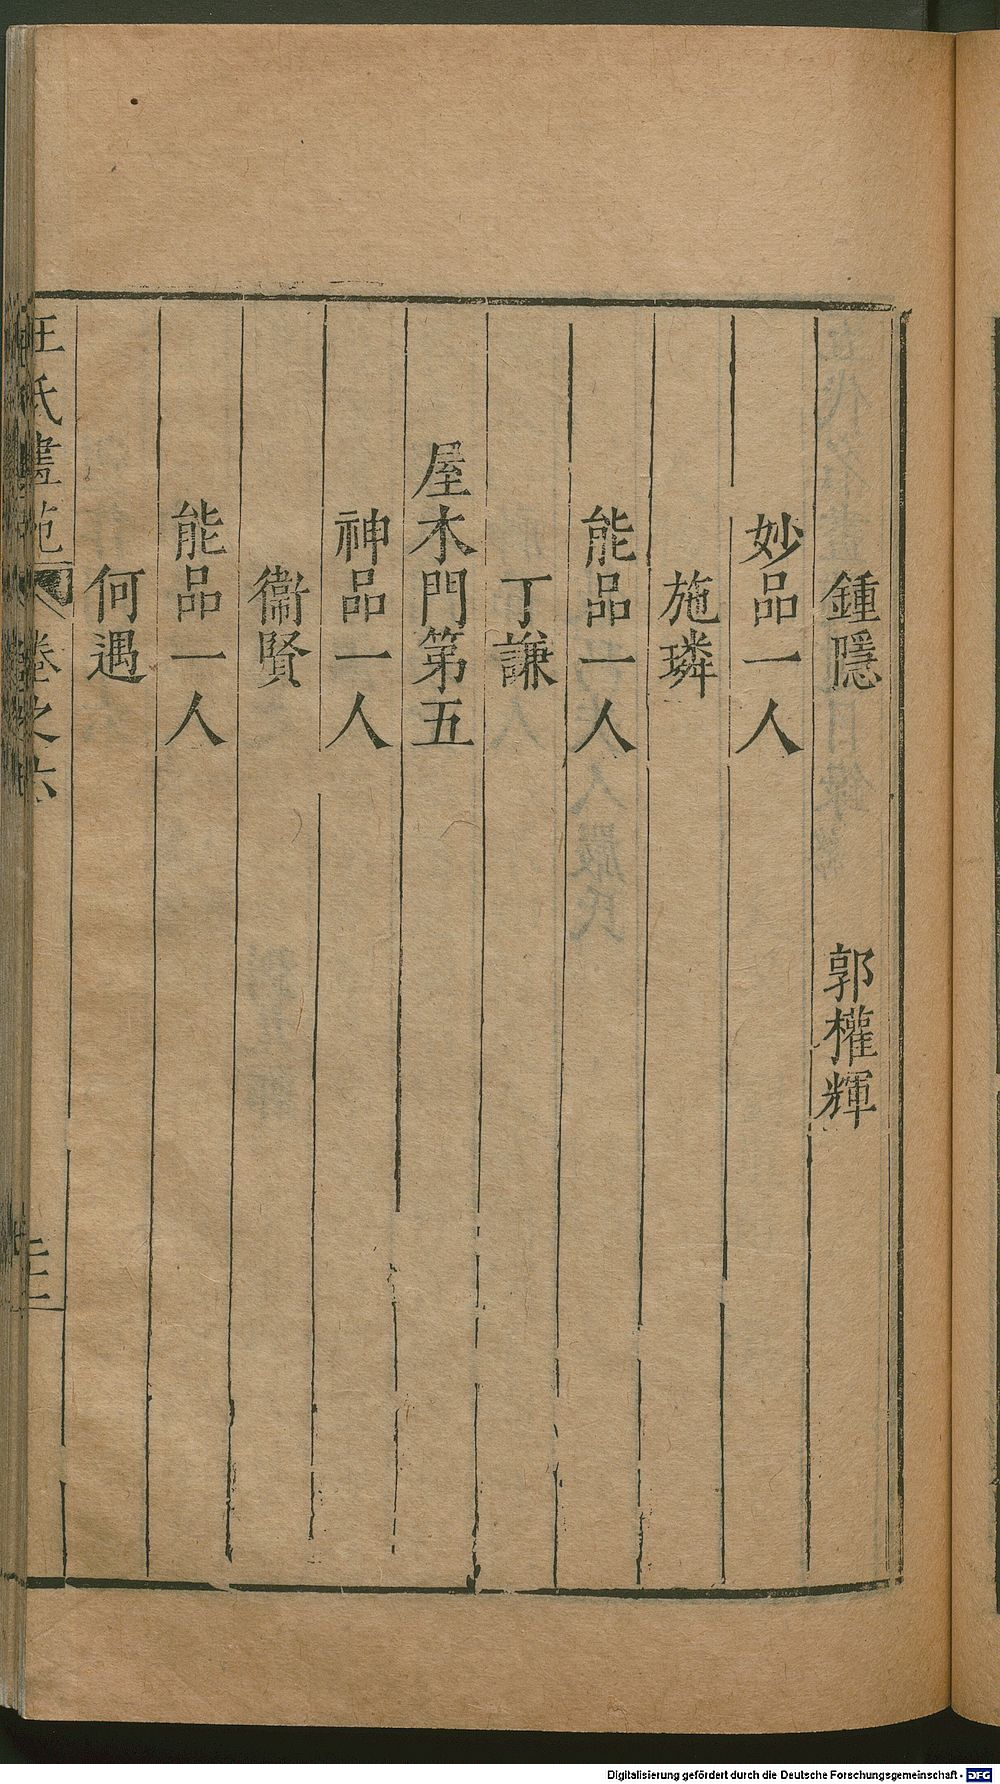 鍾隱　郭權輝
妙品一人
施璘
能品一人
丁謙
屋木門第五
神品一人
衞賢
能品一人
何遇
王氏畫苑　卷之六
Digitalisierung gefördert durch die Deutsche Forschungsgemeinschaft - DFG